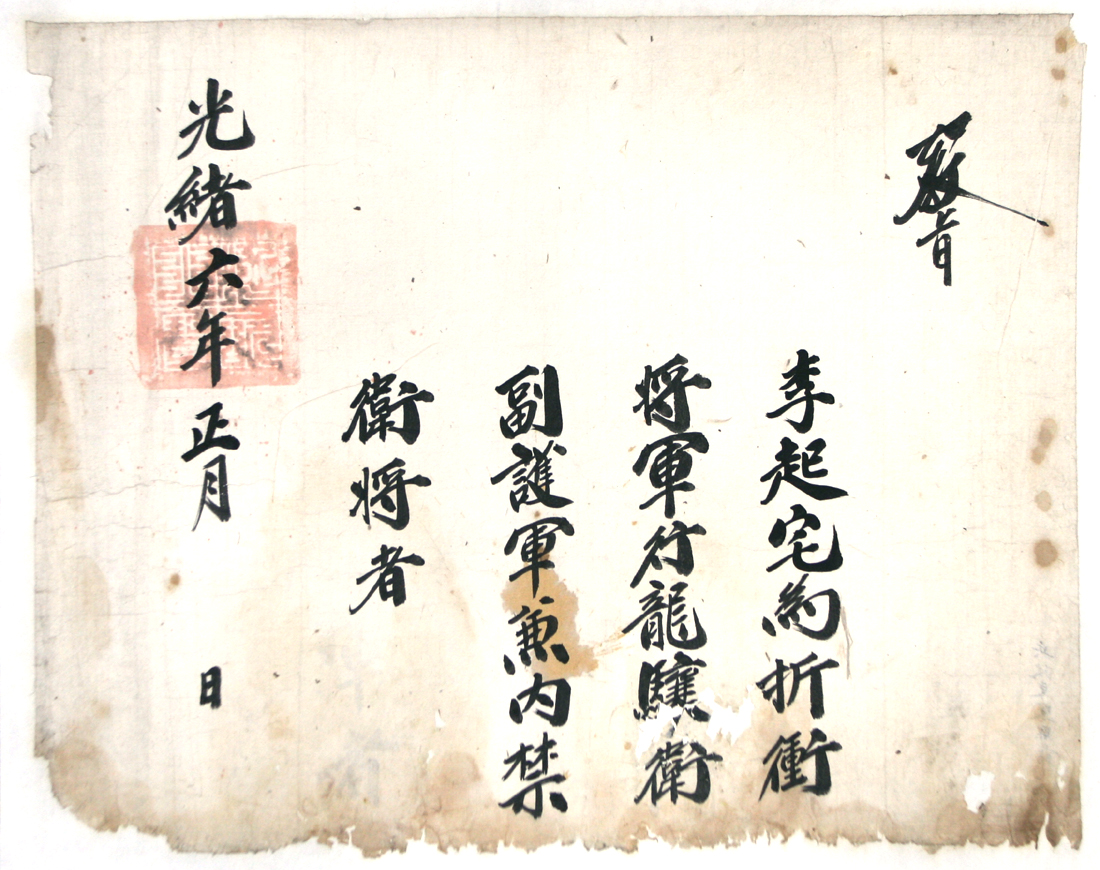 敎旨
李起宅為折衝
將軍行龍驤衛
副護軍兼內禁
衛將者
光緖六年正月 日